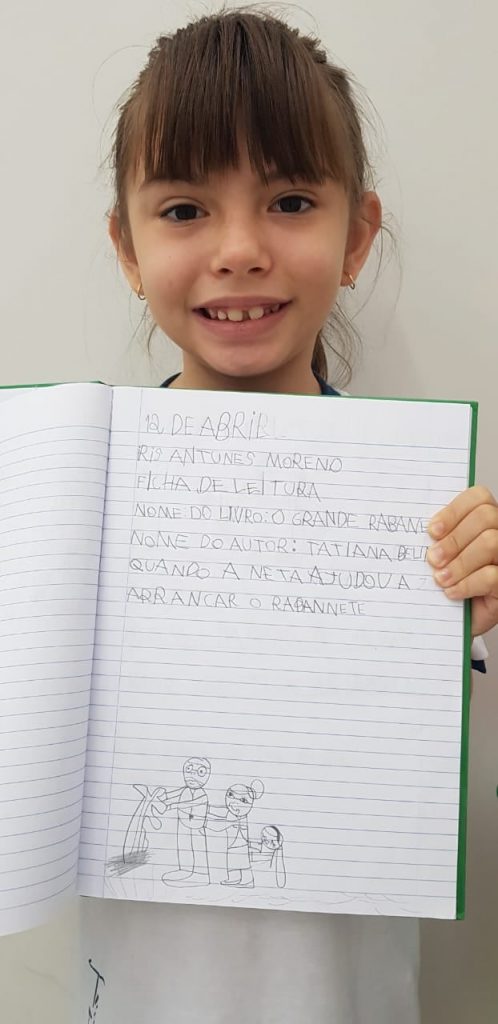 12 DE ABRIL
RIS ANTUNES MORENO
FICHA DE LEITURA
NOME DO LIVRO: O GRANDE RABANE
NOME DO AUTOR: TATIANA BELIN
QUANDO A NETA AJUDOU A
ARRANCAR O RABANNETE